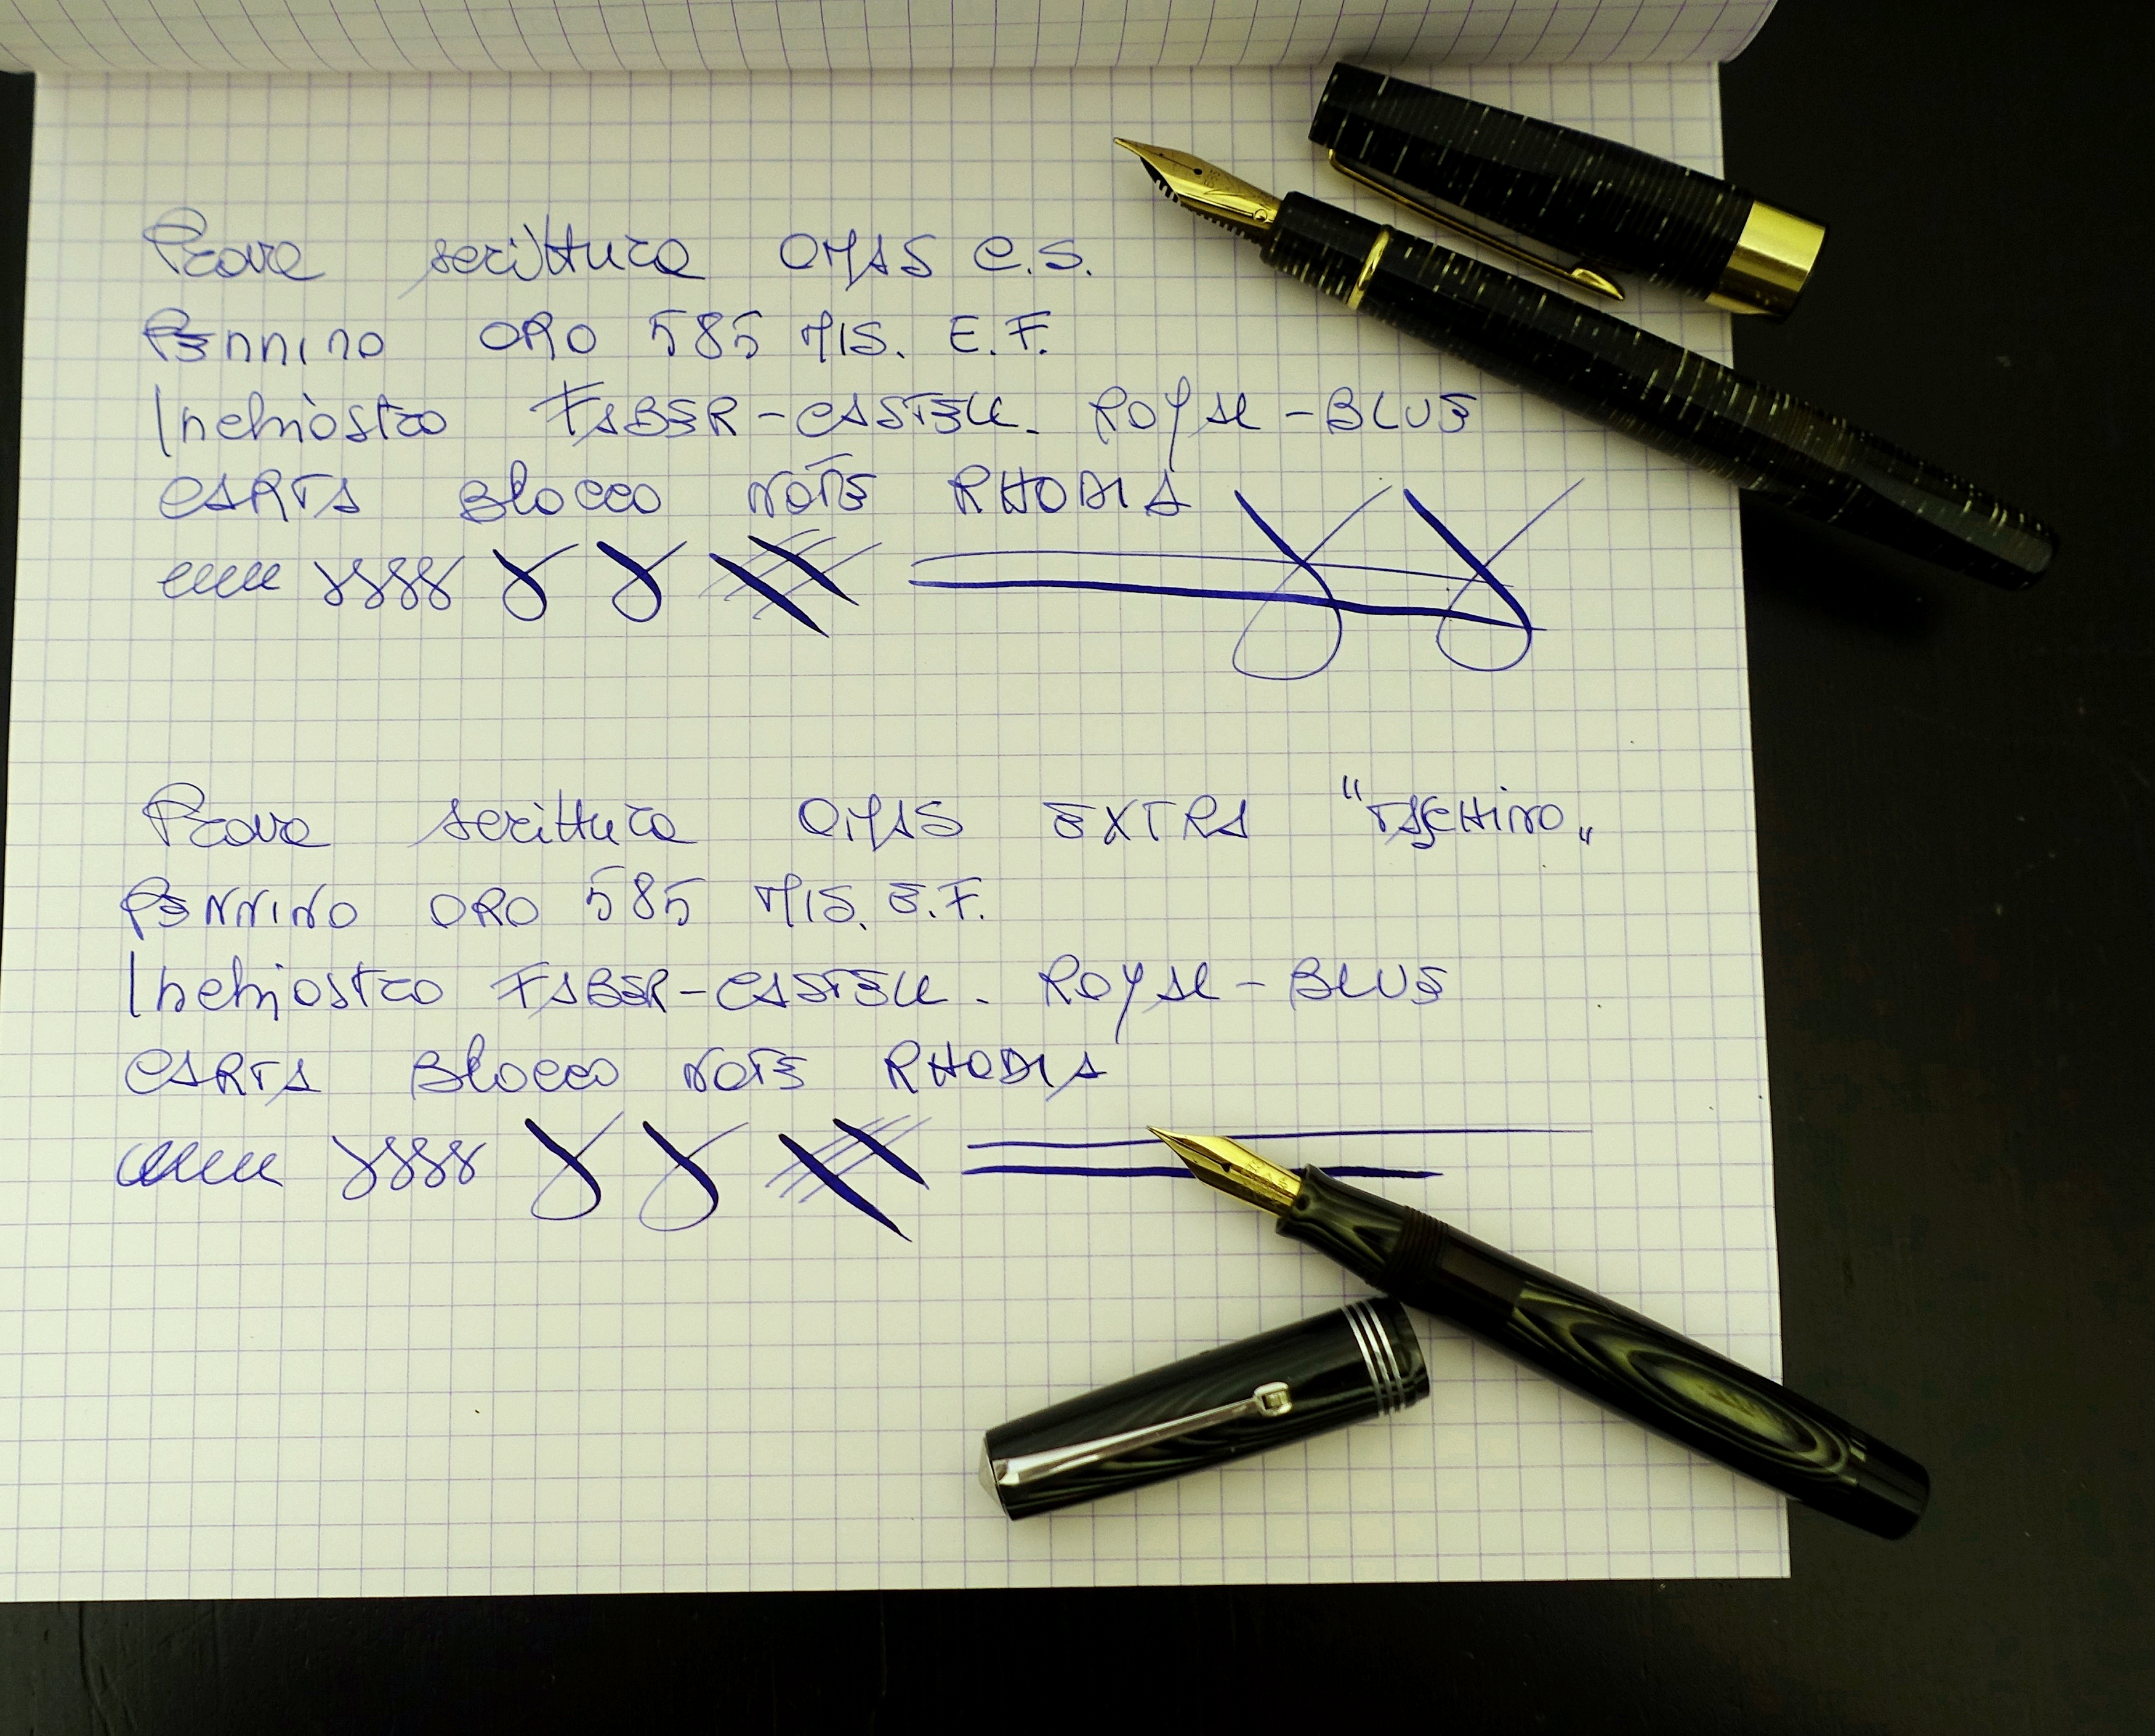 Prova scrittura OMAS C.S.
PEnnino ORO 585 MIS. E.F.
Inchiostro FABER-CASTELL. ROYAL-BLUE
CARTA BlOCCO NOTE RHODIA
Prova scrittura OMAS EXTRA "TASCHINO„
PENNINO ORO 585 MIS. E.F.
Inchiostro FABER-CASTELL. ROYAL-BLUE
CARTA BlOCCO NOTE RHODIA